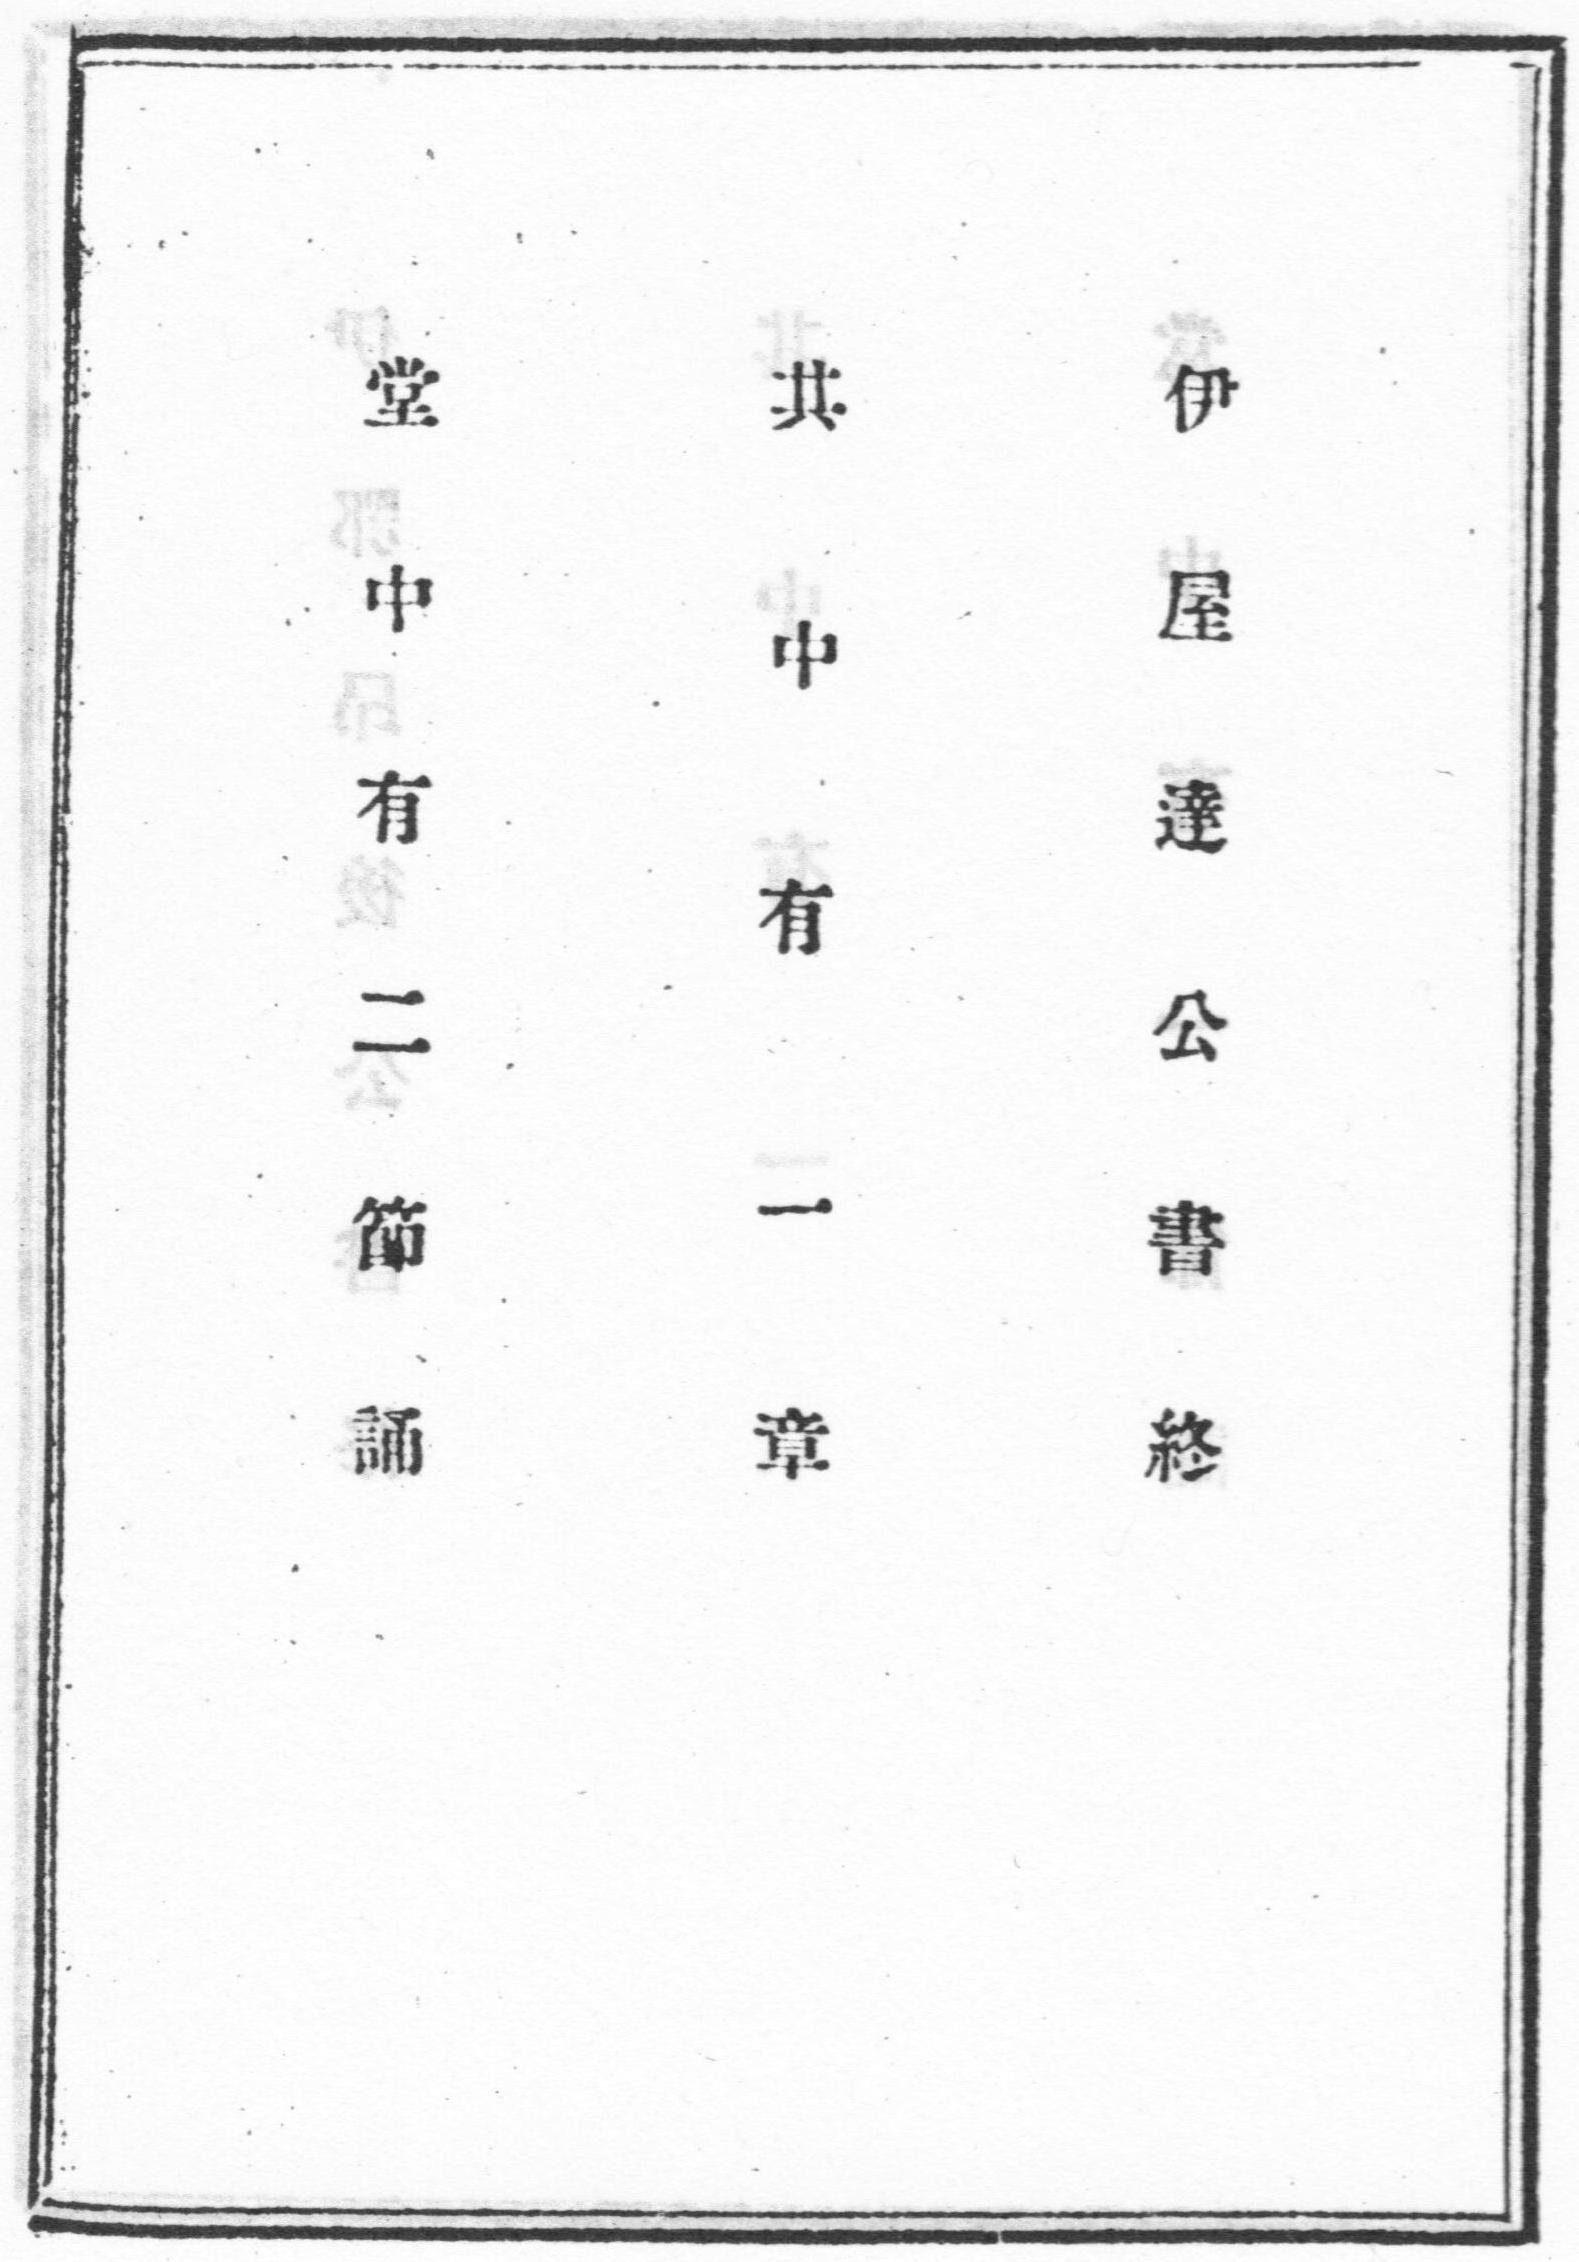 伊屋達公書終
共中有一章
堂中有二節誦